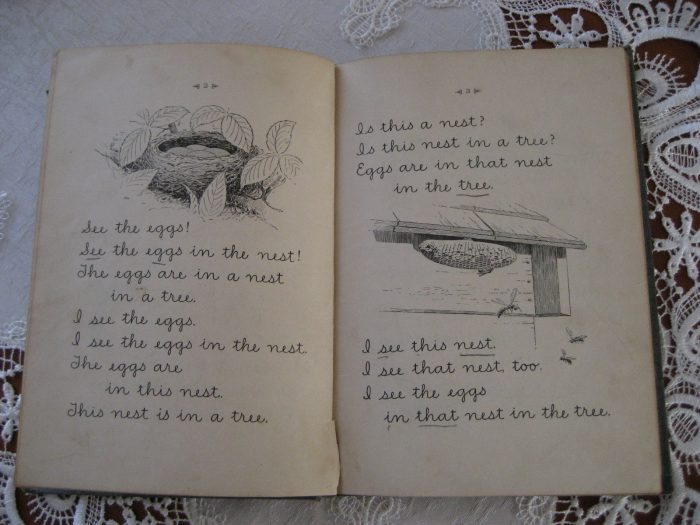 2
See the eggs!
See the eggs in the nest!
The eggs are in a nest
in a tree.
I see the eggs.
I see the eggs in the nest.
The eggs are
in this nest.
This nest is in a tree.
3
Is this a nest?
Is this nest in a tree?
Eggs are in that nest
in the tree.
I see this nest.
I see that nest, too.
I see the eggs
in that nest in the tree.